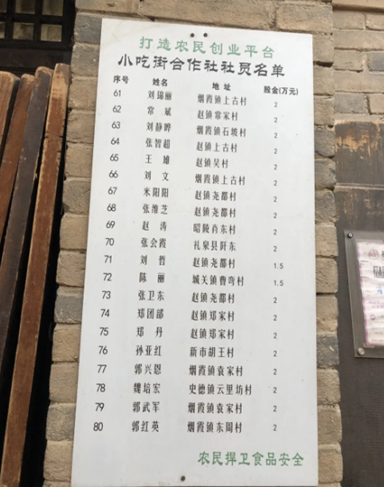 打造农民创业平台
小吃街合作社社员名单
序号 姓名 地址 股金(万元)
61 刘锡丽 烟霞镇上古村 2
62 常斌 赵镇常家村 2
63 刘静晔 烟霞镇石坡村 2
64 张智超 赵镇上古村 2
65 王雄 赵镇吴村 2
66 刘文 烟霞镇上古村 2
67 米阳阳 赵镇尧都村 2
68 张维芝 赵镇尧都村 2
69 赵涛 昭陵肖东村 2
70 张会霞 礼泉县阡东 2
71 刘哲 赵镇尧都村 1.5
72 陈丽 城关镇曹弯村 1.5
73 张卫东 赵镇尧都村 2
74 郑团部 赵镇郑家村 2
75 郑丹 赵镇郑家村 2
76 孙亚红 新市胡王村 2
77 郭兴恩 烟霞镇袁家村 2
78 魏培宏 史德镇云里坊村 2
79 郭武军 烟霞镇袁家村 2
80 郭红英 烟霞镇东周村 2
农民捍卫食品安全